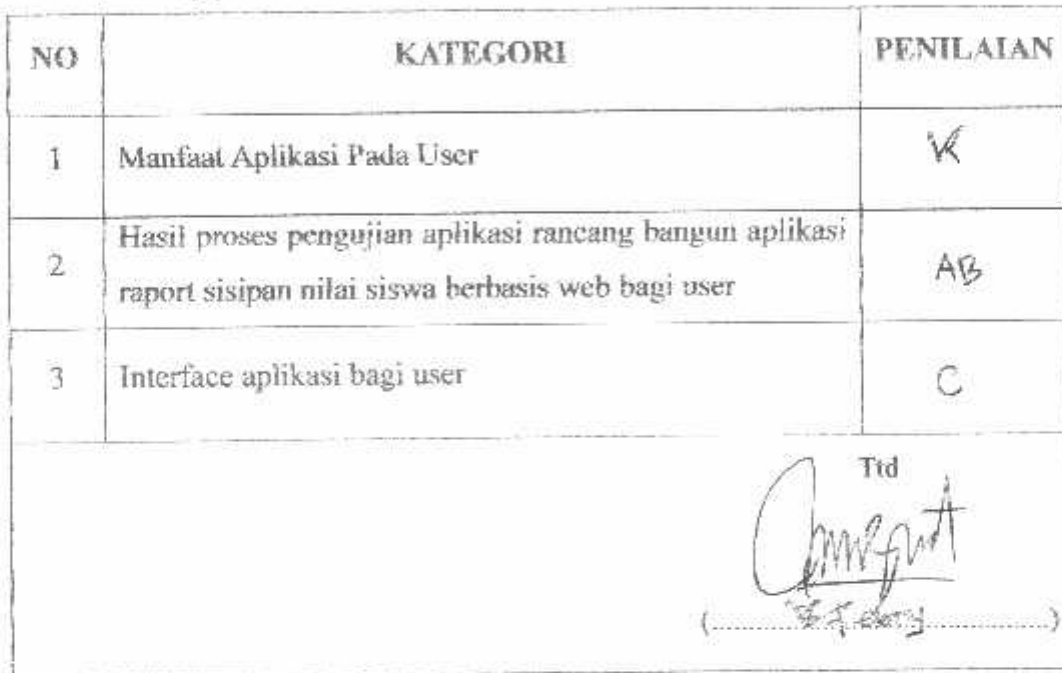 NO KATEGORI PENILAIAN
1 Manfaat Aplikasi Pada User K
Hasil proses pengujian aplikasi rancang bangun aplikasi
2 raport sisipan nilai siswa berbasis web bagi user AB
3 Interface aplikasi bagi user C
Ttd
(..............................)